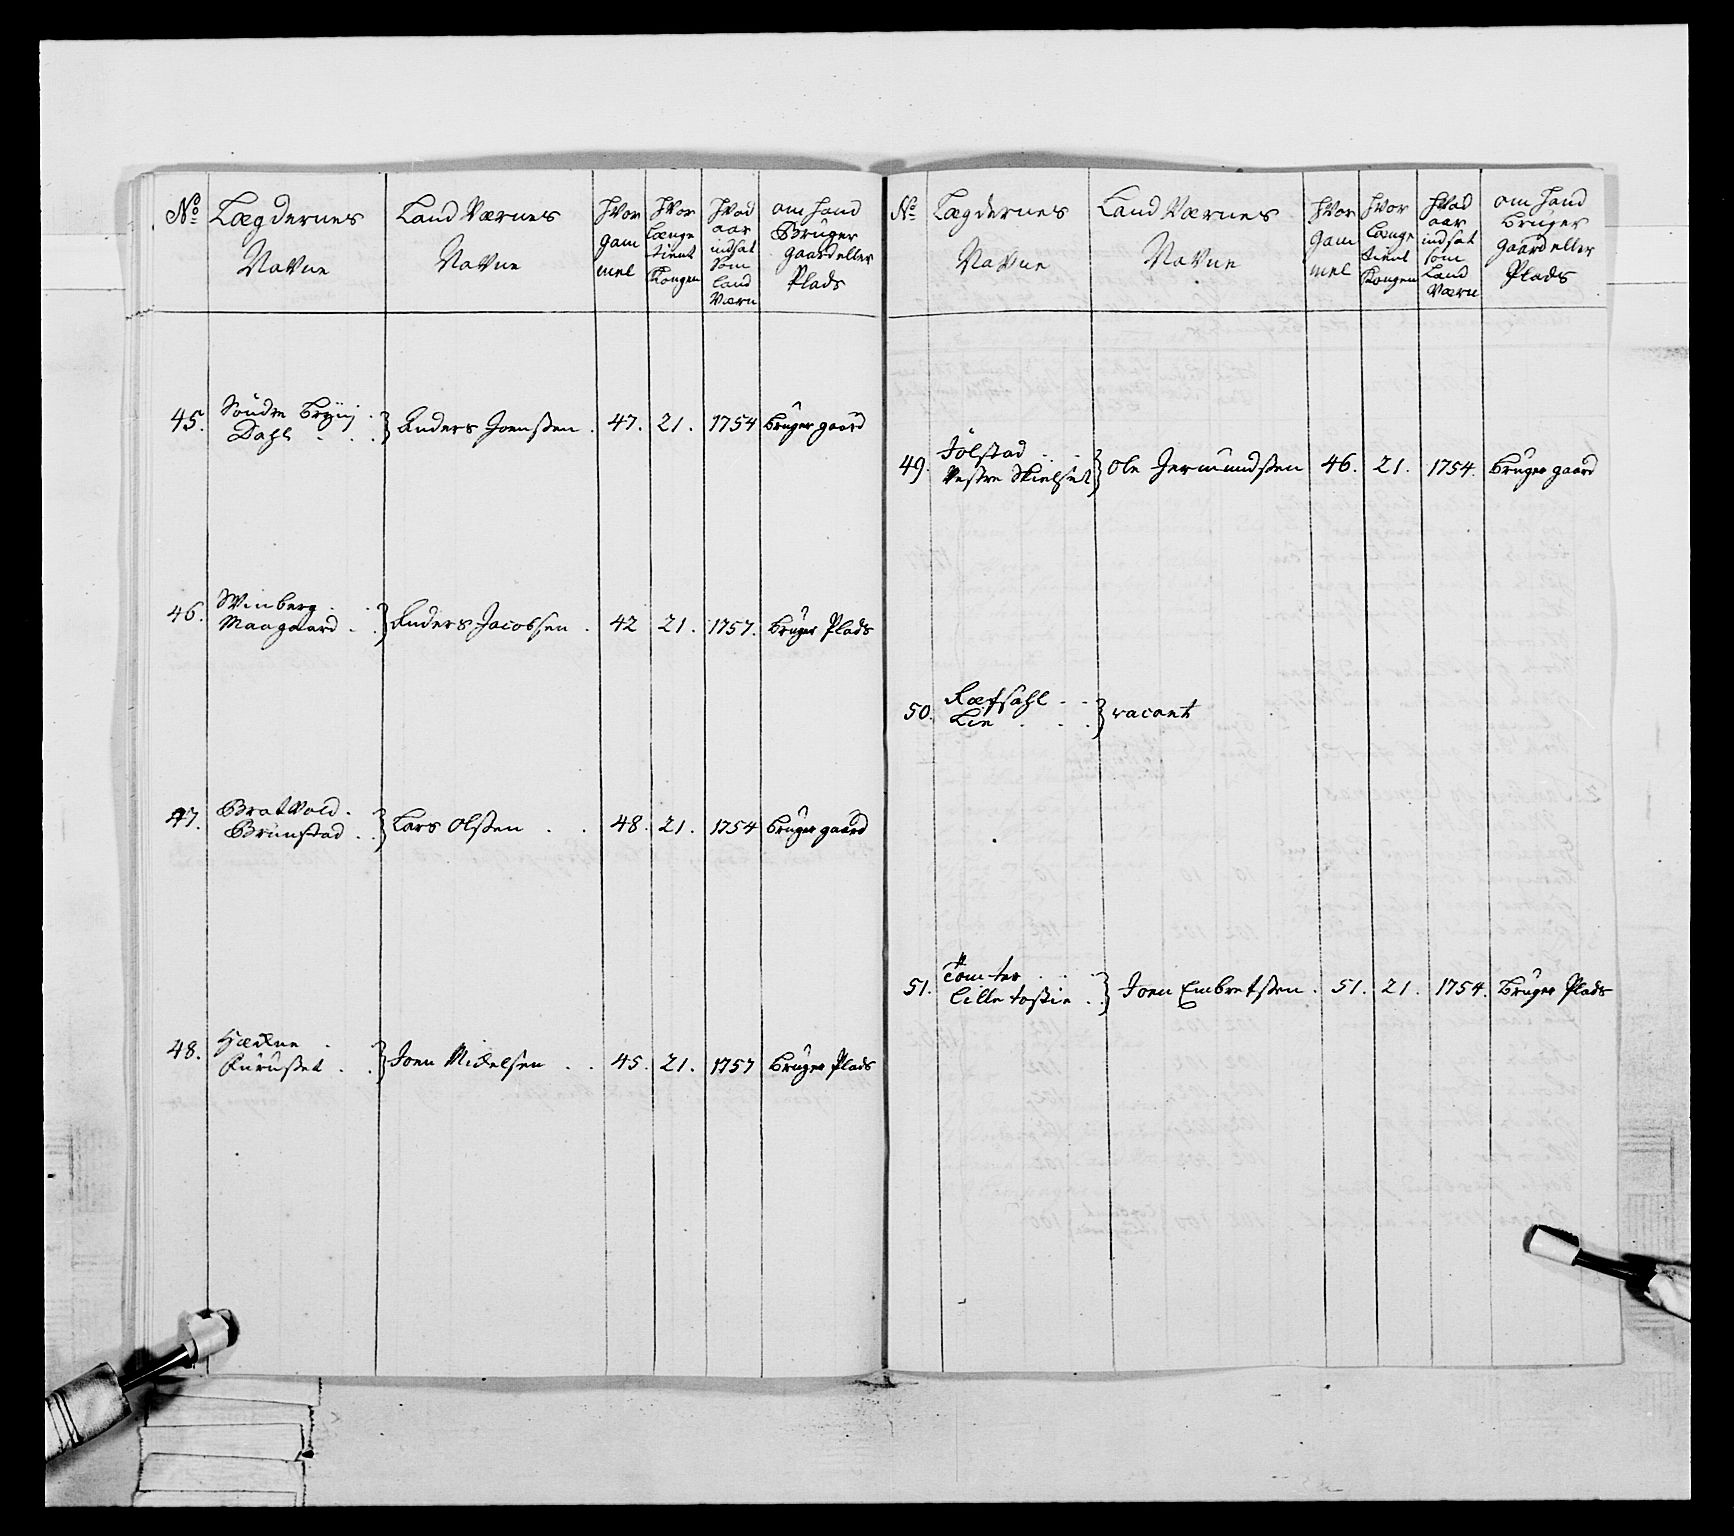 No
Lægdernes
Navne
Land Værnes
Navne
Hvor
gam
mel
Hvor
Længe
tient
Kongen
Hvad
aar
indsat
som
land
Værn
om hand
Bruger
gaard eller
Plads
45. Søndre Bryn
Dahl } Anders Joensen . 47. 21. 1754 Bruger gaard
46. Winberg
Maagaard } Anders Jacobsen . 42 21. 1757. Bruger Plads
47. Bratvold
Brunstad } Lars Olssen . . 48. 21. 1754 Bruger gaard
48.
Furusset } Joen Mickelsen . . 45. 21. 1757 Bruger Plads
No
Lægdernes
Navne
Land Værnes
Navne
Hvor
gam
mel
Hvor
Længe
tient
Kongen
Hvad
aar
indsat
som
Land
Værn
om hand
Bruger
gaard eller
Plads
49. Jølstad
Vestre Skielset } Ole Jermundssen 46. 21. 1754. Bruger gaard
50. Ræfsahl
Lie } vacant
51. Tomter
Lille Toskie } Joen Embretssen . 51. 21. 1754. Bruger Plads